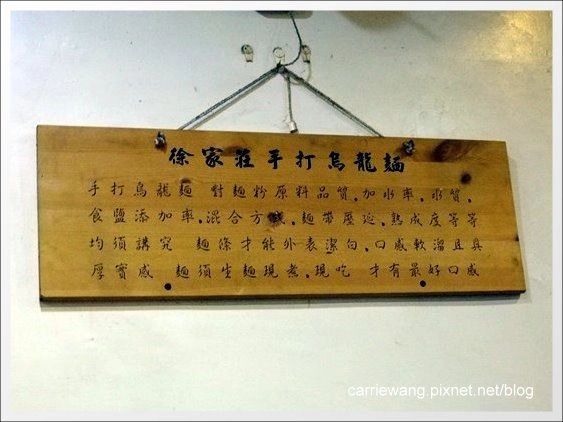 徐家莊手打烏龍麵
手打烏龍麵 對麵粉原料品質.加水率.水質.
食鹽添加率.混合方式.麵帶壓延.熟成度等等
均須講究 麵條才能外表潔白.口感軟溜且具
厚實感 麵須生麵現煮.現吃 才有最好口感
carriewang.pixnet.net/blog